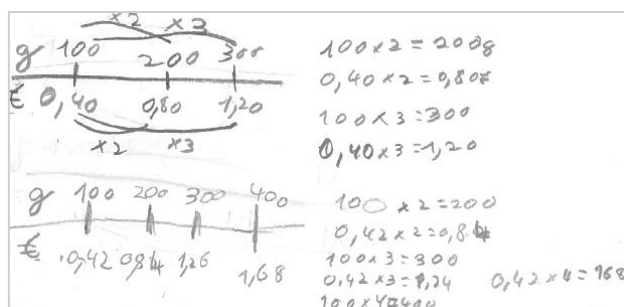 ×2 ×3
g 100 200 300
€ 0,40 0,80 1,20
×2 ×3
100 × 2 = 200g
0,40 × 2 = 0,80€
100 × 3 = 300
0,40 × 3 = 1,20
g 100 200 300 400
€ 0,42 0,84 1,26 1,68
100 × 2 = 200
0,42 × 2 = 0,84
100 × 3 = 300
0,42 × 3 = 1,24 0,42 × 4 = 168
100 × 4 = 400